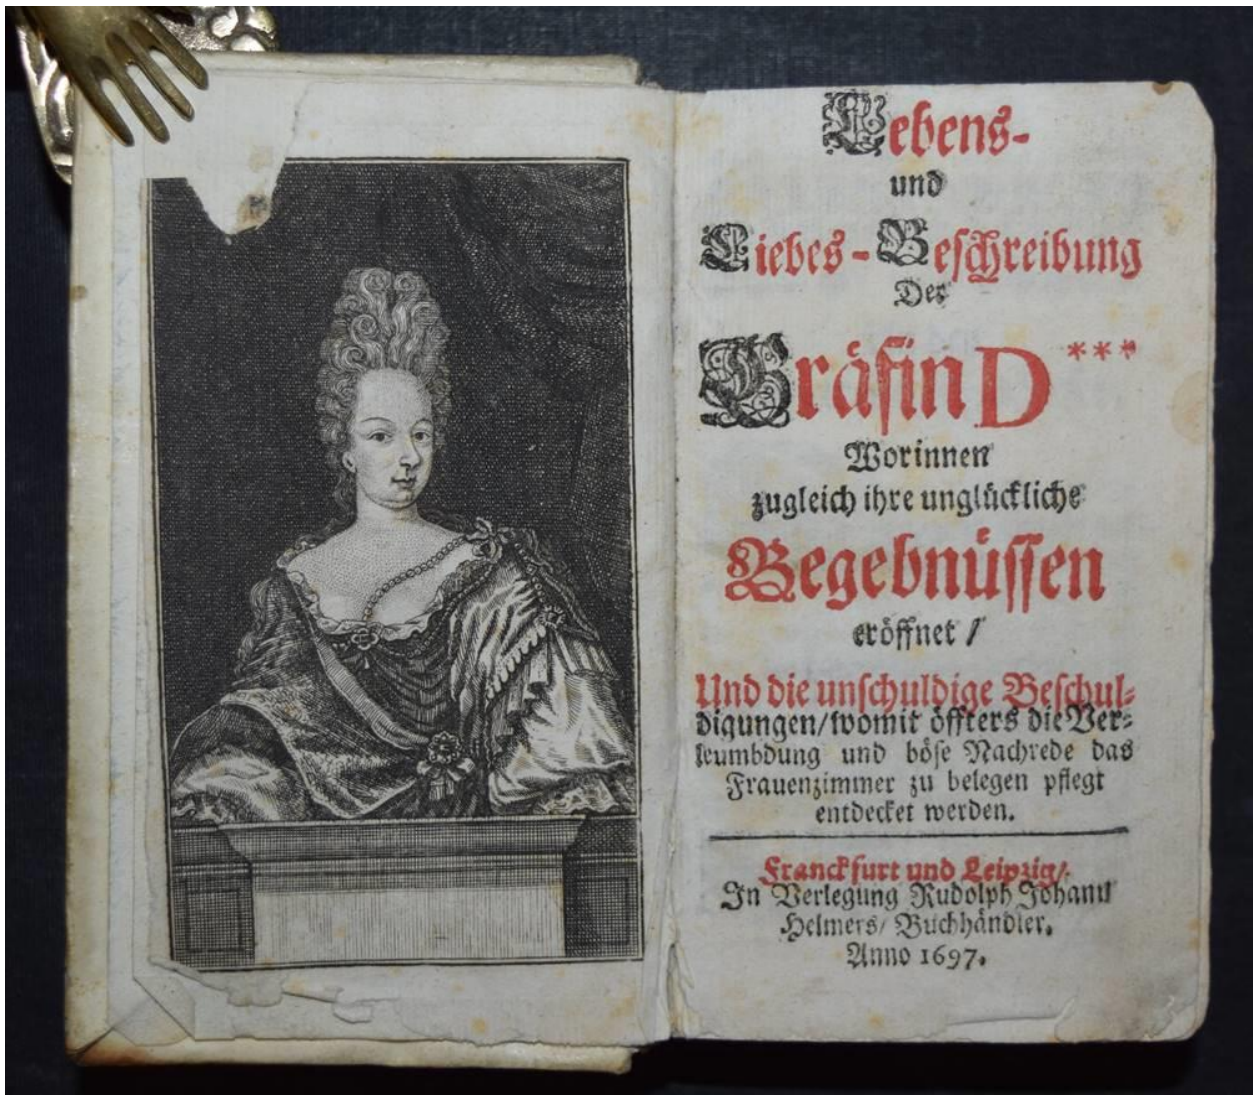 Lebens-
und
Liebes-Beschreibung
Der
Gräfin D ***
Worinnen
zugleich ihre unglückliche
Begebnüssen
eröffnet /
Und die unschuldige Beschul-
digungen/womit öffters die Ver-
leumbdung und böse Nachrede das
Frauenzimmer zu belegen pflegt
entdecket werden.
Franckfurt und Leipzig/
In Verlegung Rudolph Johann
Helmers/ Buchhändler.
Anno 1697.